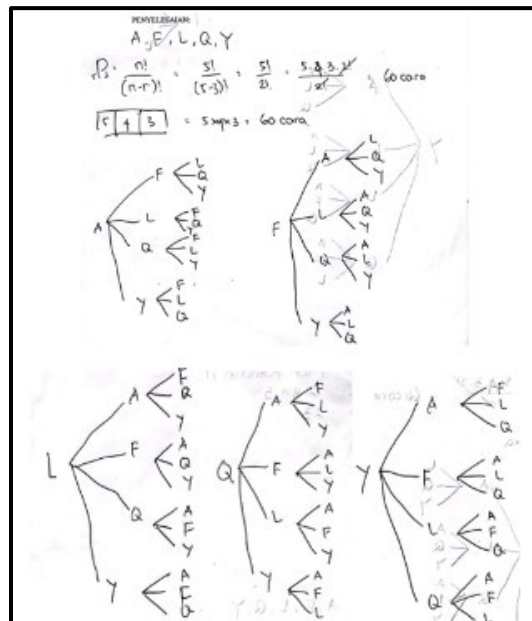 PENYELESAIAN:
A, F, L, Q, Y
nPr = n! / (n-r)! = 5! / (5-3)! = 5! / 2! = 5.4.3.2! / 2! = 60 cara
5 4 3 = 5x4x3 = 60 cara
A
F L Q Y
L F Q Y
Q F L Y
Y F L Q
F
A L Q Y
L A Q Y
Q A L Y
Y A L Q
L
A F Q Y
F A Q Y
Q A F Y
Y A F Q
Q
A F L Y
F A L Y
L A F Y
Y A F L
Y
A F L Q
F A L Q
L A F Q
Q A F L